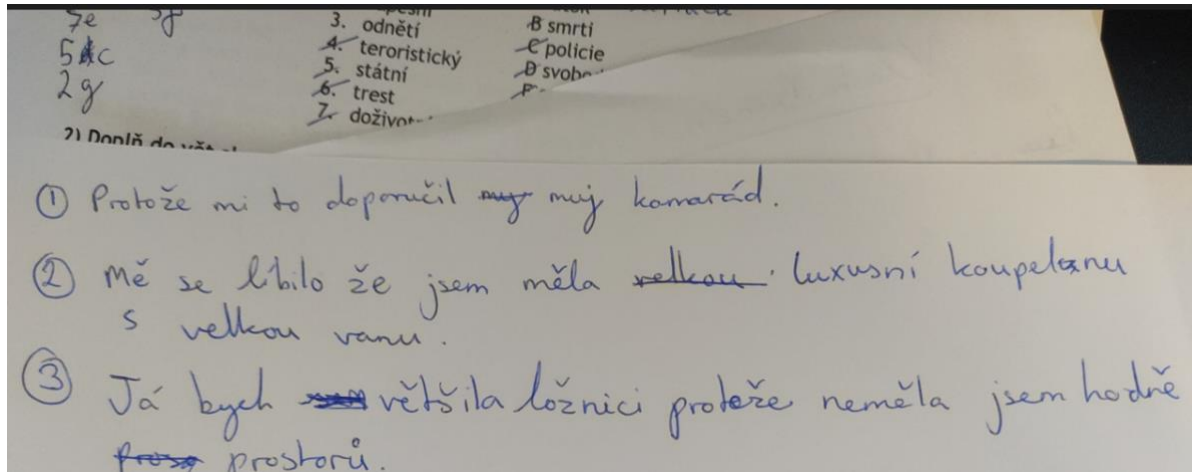 7e
5c
2g
3. odnětí
4. teroristický
5. státní
6. trest
7. doživot
B smrti
C policie
D svobo
2) Doplň do vět
① Protože mi to doporučil muj kamarád.
② Mě se líbilo že jsem měla velkou luxusní koupelnu
s velkou vanu.
③ Já bych většila ložnici proteže neměla jsem hodně
prostorů.